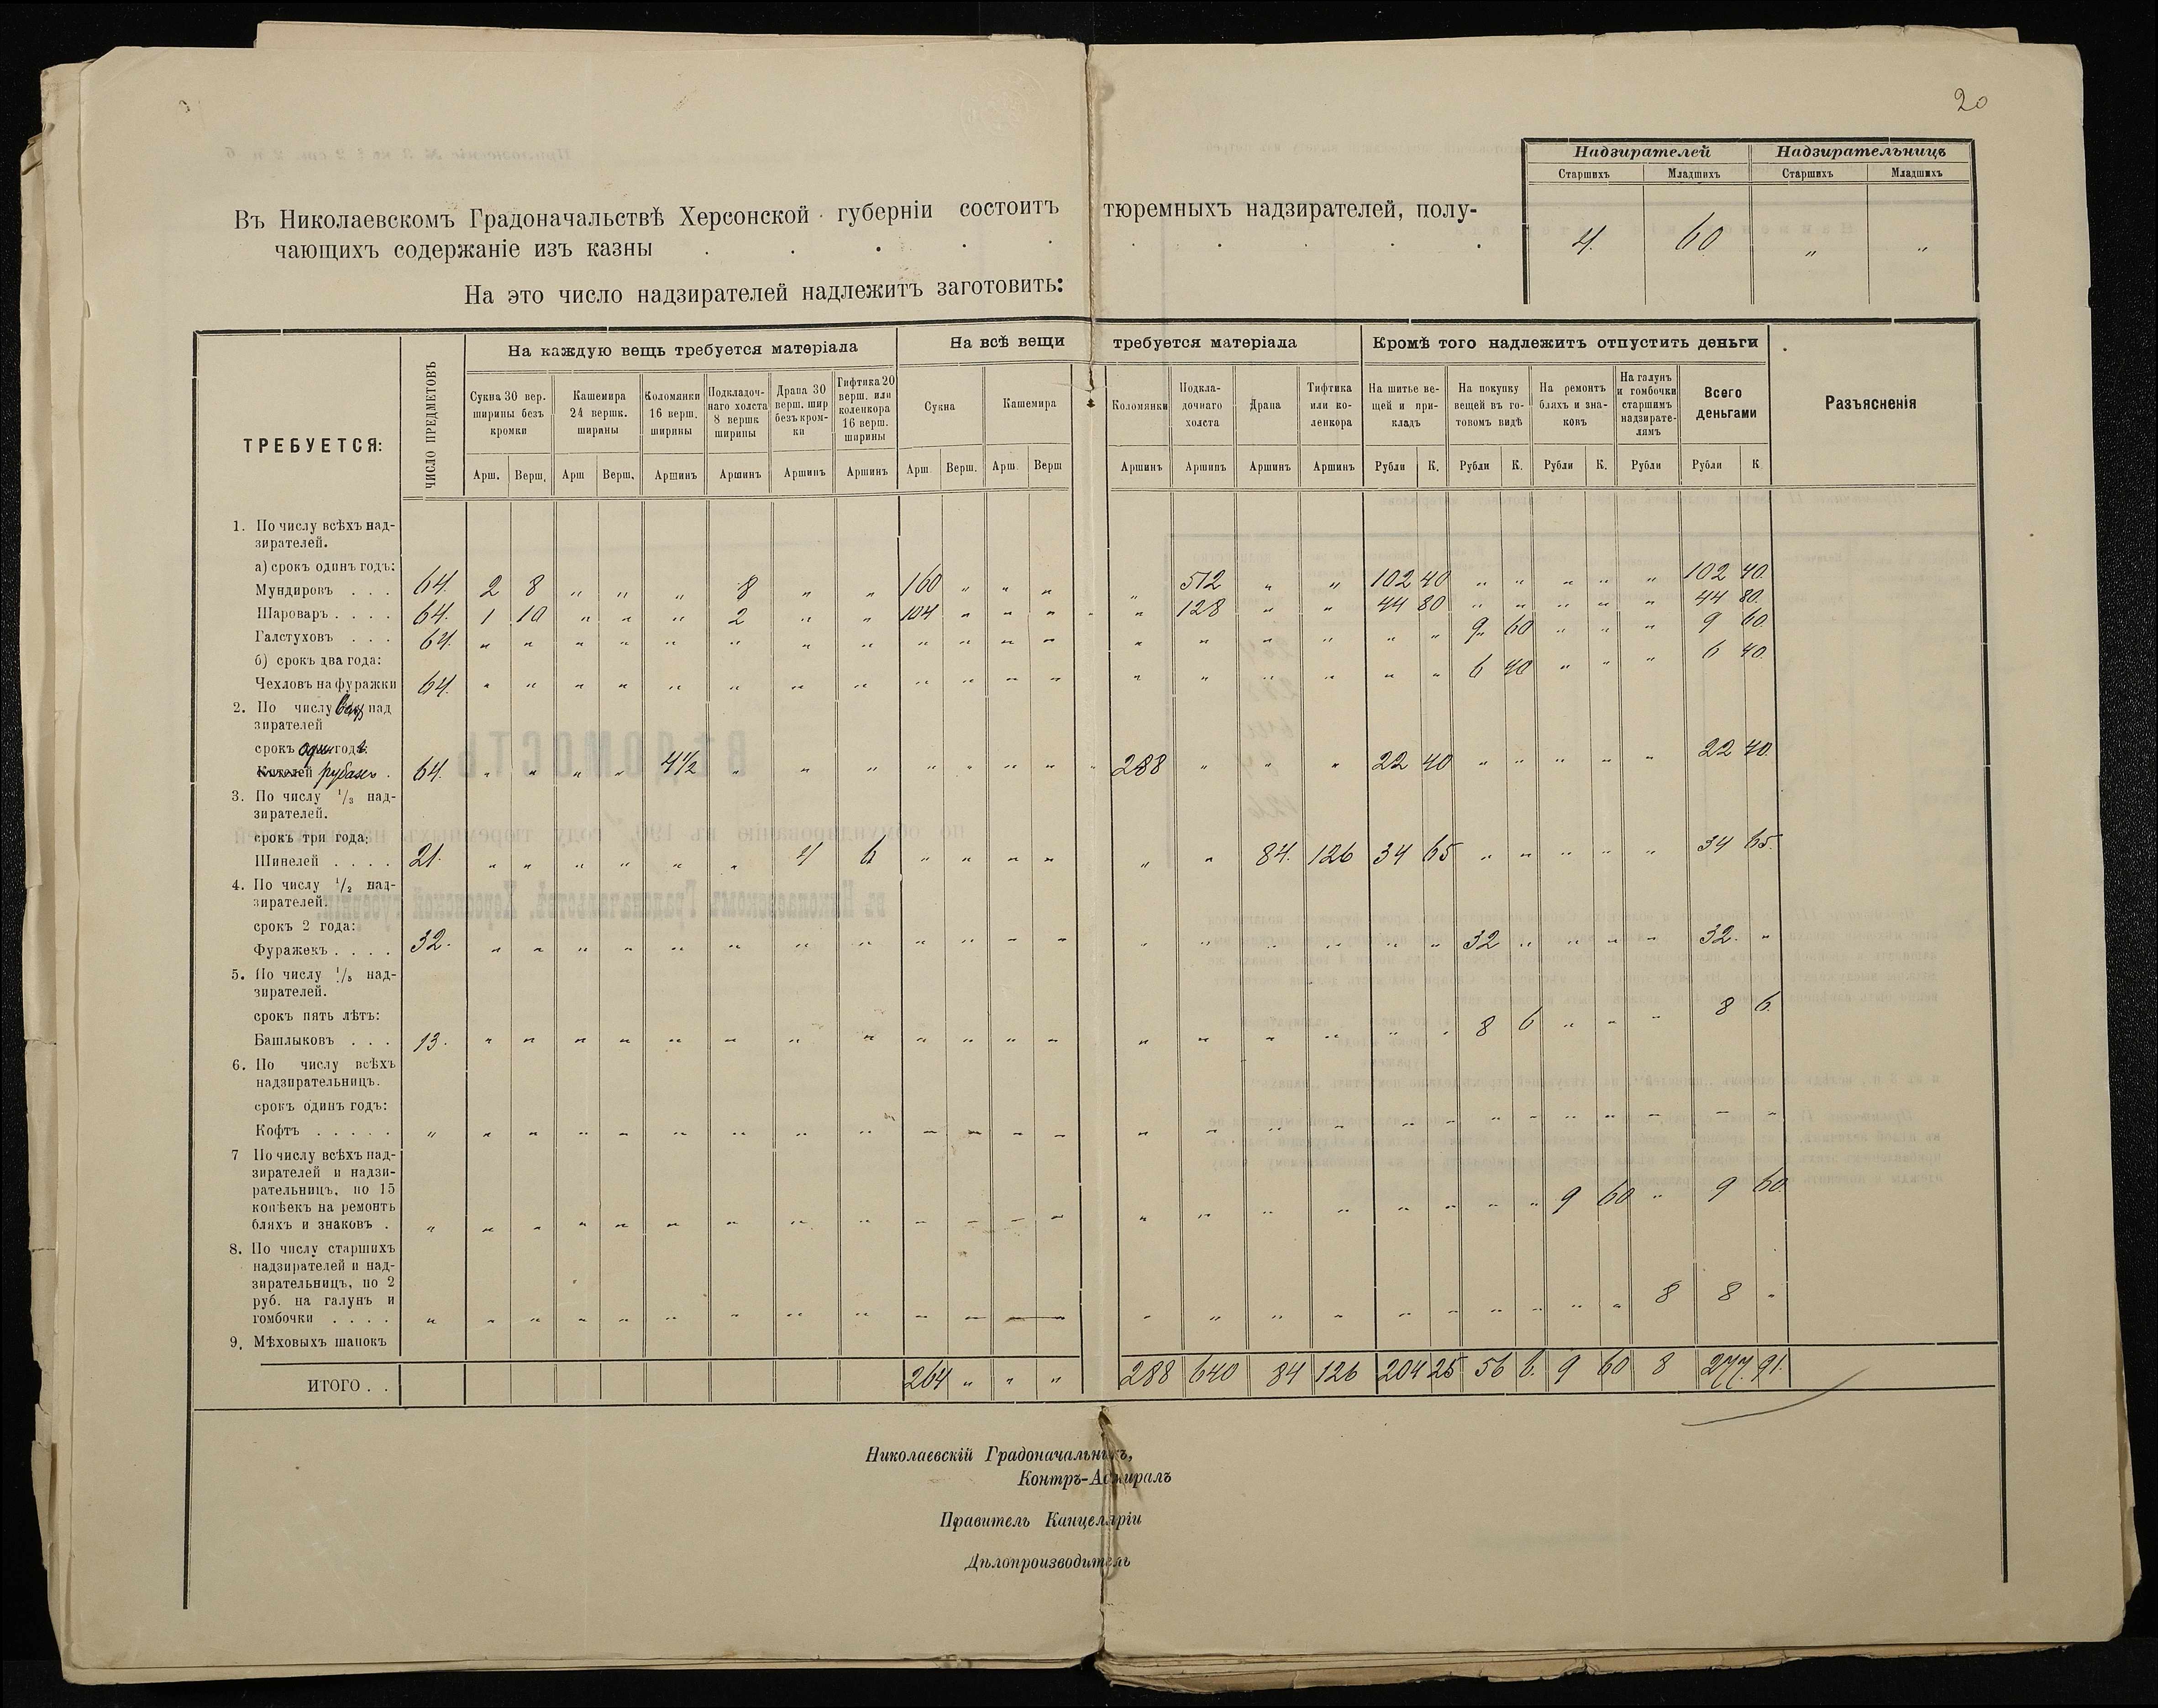 20
Надзирателей Надзирательницъ
Старшихъ Младшихъ Старшихъ Младшихъ
4. 60 " "
Въ Николаевскомъ Градоначальствѣ Херсонской губерніи состоитъ тюремныхъ надзирателей, полу-
чающихъ содержаніе изъ казны . . . . . . . . . .
На это число надзирателей надлежитъ заготовить:
ТРЕБУЕТСЯ:
ЧИСЛО ПРЕДМЕТОВЪ
На каждую вещь требуется матеріала
На всѣ вещи требуется матеріала
Кромѣ того надлежитъ отпустить деньги
Разъясненія
Сукна 30 вер.
ширины безъ
кромки
Кашемира
24 вершк.
ширины
Коломянки
16 верш.
ширины
Подкладоч-
наго холста
8 вершк
ширины
Драпа 30
верш. шир
безъ кром-
ки
Гифтика 20
верш. или
коленкора
16 верш.
ширины
Сукна
Кашемира
Коломянки
Подкла-
дочнаго
холста
Драпа
Тифтика
или ко-
ленкора
На шитье ве-
щей и при-
кладъ
На покупку
вещей въ го-
товомъ видѣ
На ремонтъ
бляхъ и зна-
ковъ
На галунъ
и гомбочки
старшимъ
надзирате-
лямъ
Всего
деньгами
Арш. Верш. Арш Верш. Аршинъ Аршинъ Аршинъ Аршинъ Арш. Верш. Арш. Верш Аршинъ Аршинъ Аршинъ Аршинъ Рубли К. Рубли К. Рубли К. Рубли Рубли К
1. По числу всѣхъ над-
зирателей.
а) срокъ одинъ годъ:
Мундировъ . . . 64. 2 8 " " " 8 " " 160 " " " " 512 " " 102 40 " " " " " 102 40.
Шароваръ . . . . 64. 1 10 " " " 2 " " 104 " " " " 128 " " 44 80 " " " " " 44 80.
Галстуховъ . . . 64. " " " " " " " " " " " " " " " " " " 9 60 " " " 9 60
б) срокъ два года:
Чехловъ на фуражки 64. " " " " " " " " " " " " " " " " " " 6 40 " " " 6 40.
2. По числу всѣхъ над
зирателей
срокъ одинъ годъ:
Кителей рубахъ . 64. " " " " 4½ " " " " " " " 288 " " " 22 40 " " " " " 22 40.
3. По числу 1/3 над-
зирателей.
срокъ три года:
Шинелей . . . . 21. " " " " " " 4 6 " " " " " " 84. 126 34 65 " " " " " 34 65.
4. По числу 1/2 над-
зирателей.
срокъ 2 года:
Фуражекъ . . . . 32. " " " " " " " " " " " " " " " " " " 32 " " " " 32. "
5. По числу 1/5 над-
зирателей.
срокъ пять лѣтъ:
Башлыковъ . . . 13. " " " " " " " " " " " " " " " " " " 8 6 " " " 8 6.
6. По числу всѣхъ
надзирательницъ.
срокъ одинъ годъ:
Кофтъ . . . . . " " " " " " " " " " " " " " " " " " " " " " " " " "
7 По числу всѣхъ над-
зирателей и надзи-
рательницъ, по 15
копѣекъ на ремонтъ
бляхъ и знаковъ . " " " " " " " " " " " " " " " " " " " " " 9 60 " 9 60.
8. По числу старшихъ
надзирателей и над-
зирательницъ, по 2
руб. на галунъ и
гомбочки . . . . " " " " " " " " " " " " " " " " " " " " " " " 8 8 "
9. Мѣховыхъ шапокъ
ИТОГО . . 264 " " " 288 640 84 126 204 25 56 6. 9 60 8 277. 91.
Николаевскій Градоначальникъ,
Контръ-Адмиралъ
Правитель Канцеляріи
Дѣлопроизводитель